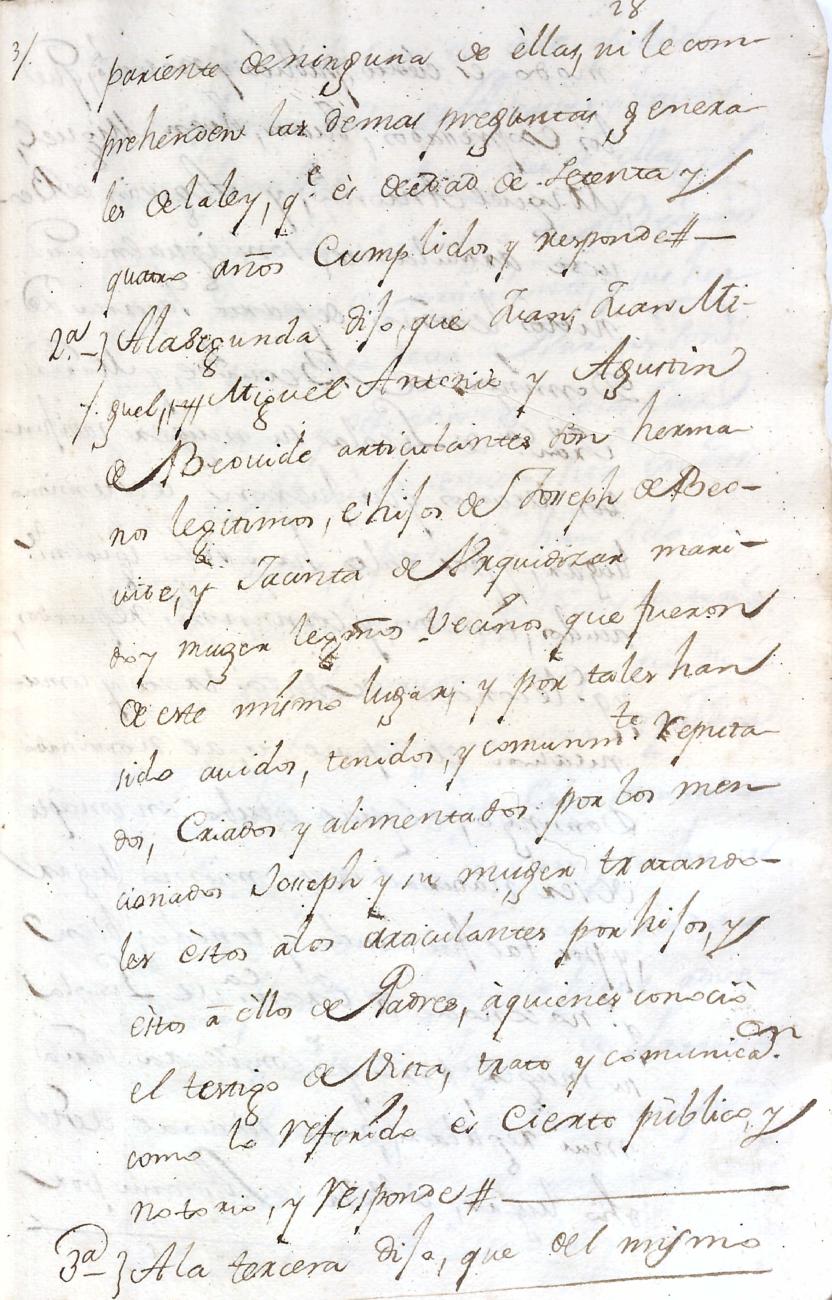 28
3/.
pariente de ninguna de èllas, ni le com-
prehenden las demas preguntas genera-
les de la ley, q.e ès de edad de setenta y
quatro años Cumplidos y responde#—
2.a } A la segunda dijo, que Juan, Juan Mi-
guel, Miguel Antonio y Agustin
de Beovide articulantes son herma-
nos legitimos, è hijos de Joseph de Beo-
vide, y Jacinta de Urquidizar mari-
do y muger legmos Vecinos que fueron
de este mismo lugar, y por tales han
sido avidos, tenidos, y comunmte reputa-
dos, Criados y alimentados por los men-
cionados Joseph y su muger tratando-
les èstos à los articulantes por hijos, y
èstos à èllos de Padres, à quienes conociò
el testigo de Vista, trato y comunicaon.
como lo referido ès Cierto pùblico, y
notorio, y responde#—
3a } A la tercera dijo, que del mismo